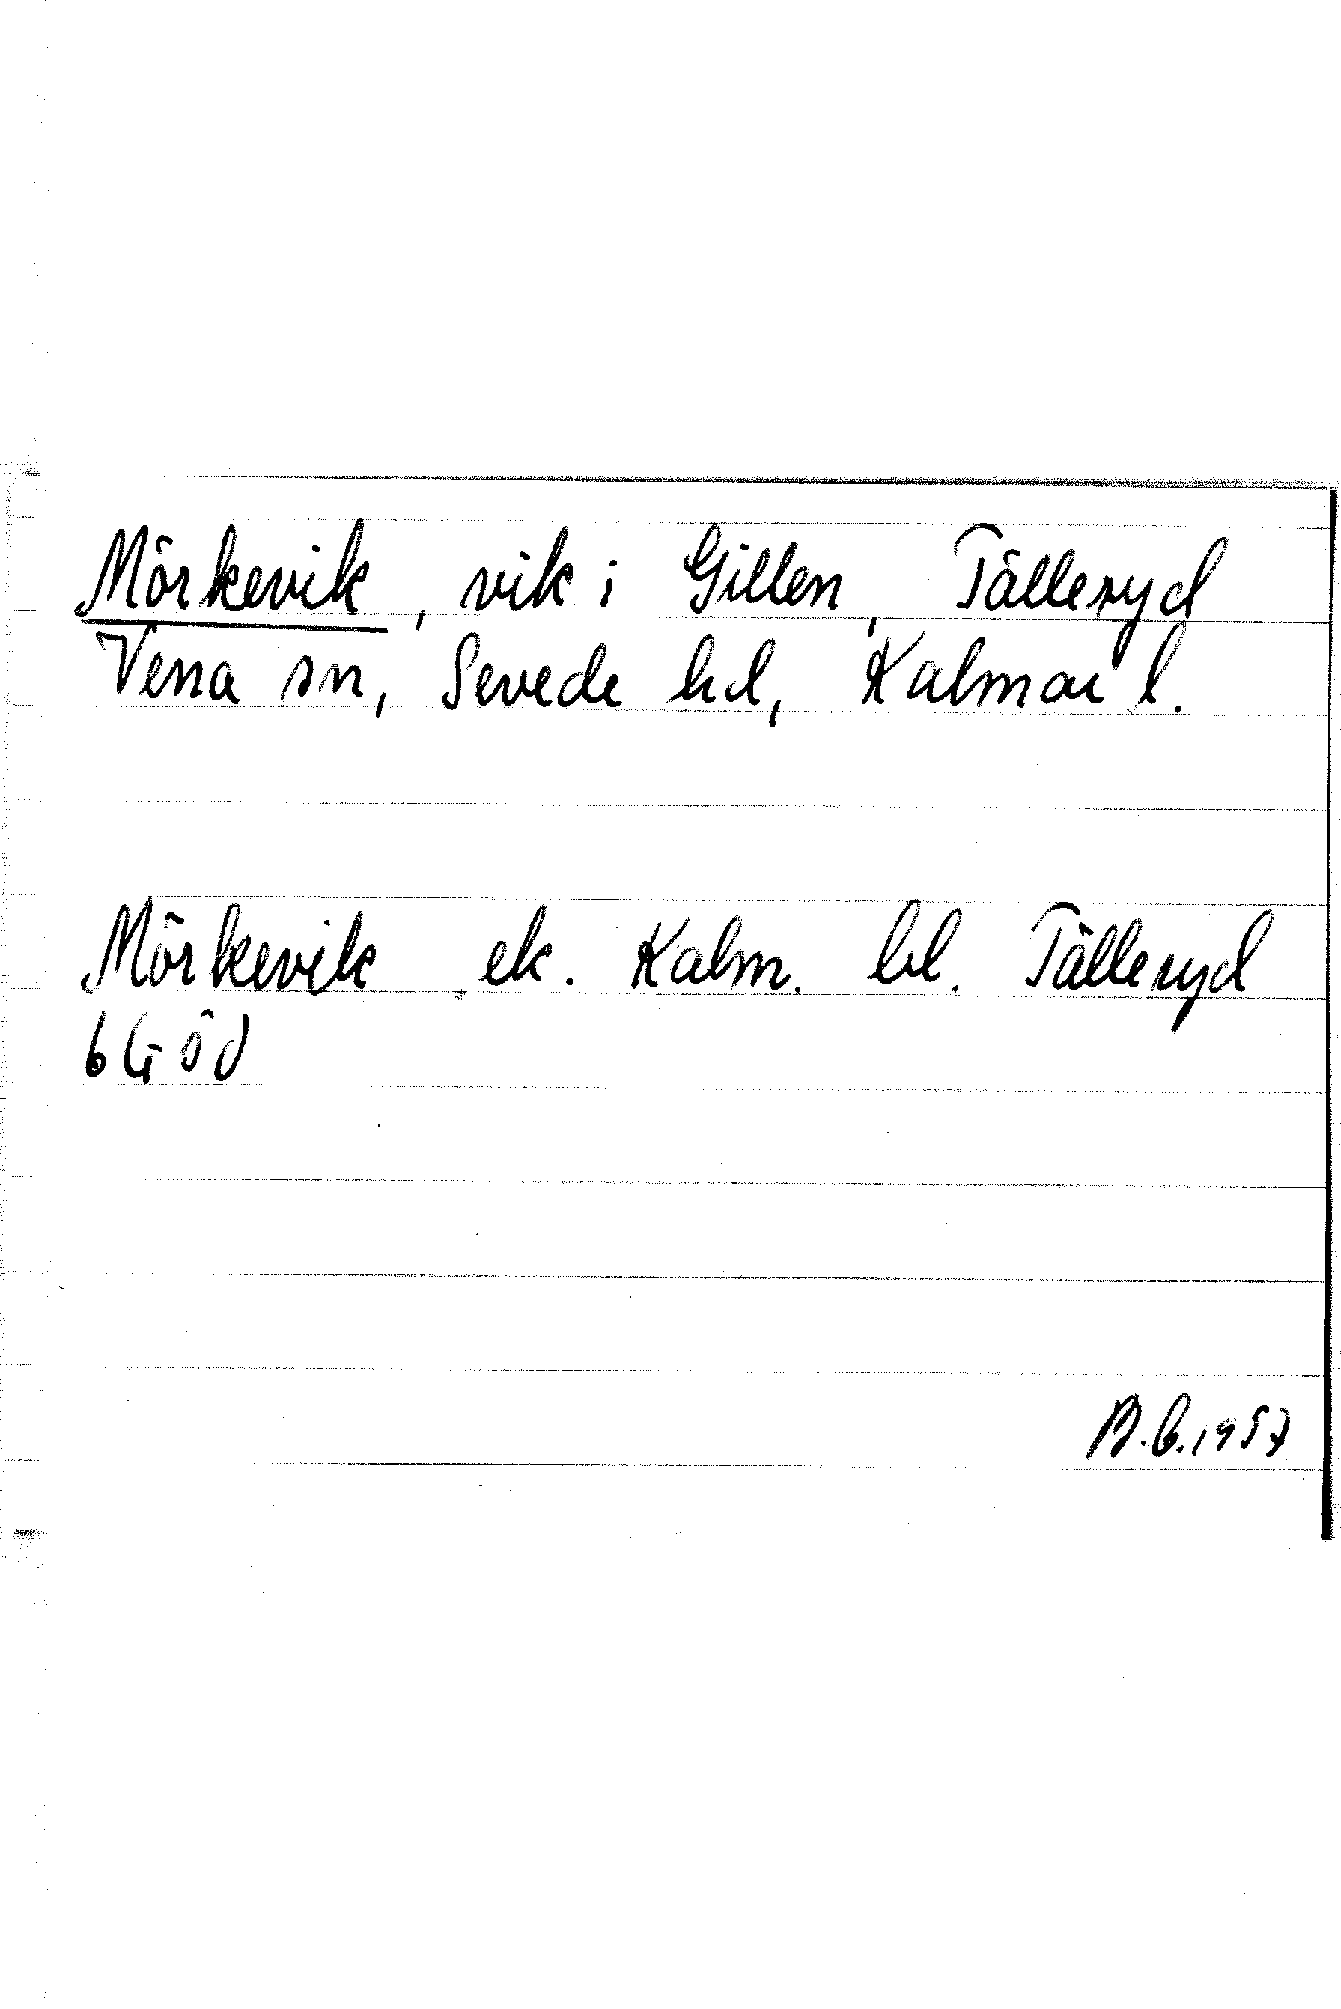 Mörkevik, vik i Gillen, Tälleryd
Vena sn, Sevede hd, Kalmar l.
Mörkevik ek. Kalm. bl. Tälleryd
6G öd
B.G. 1957